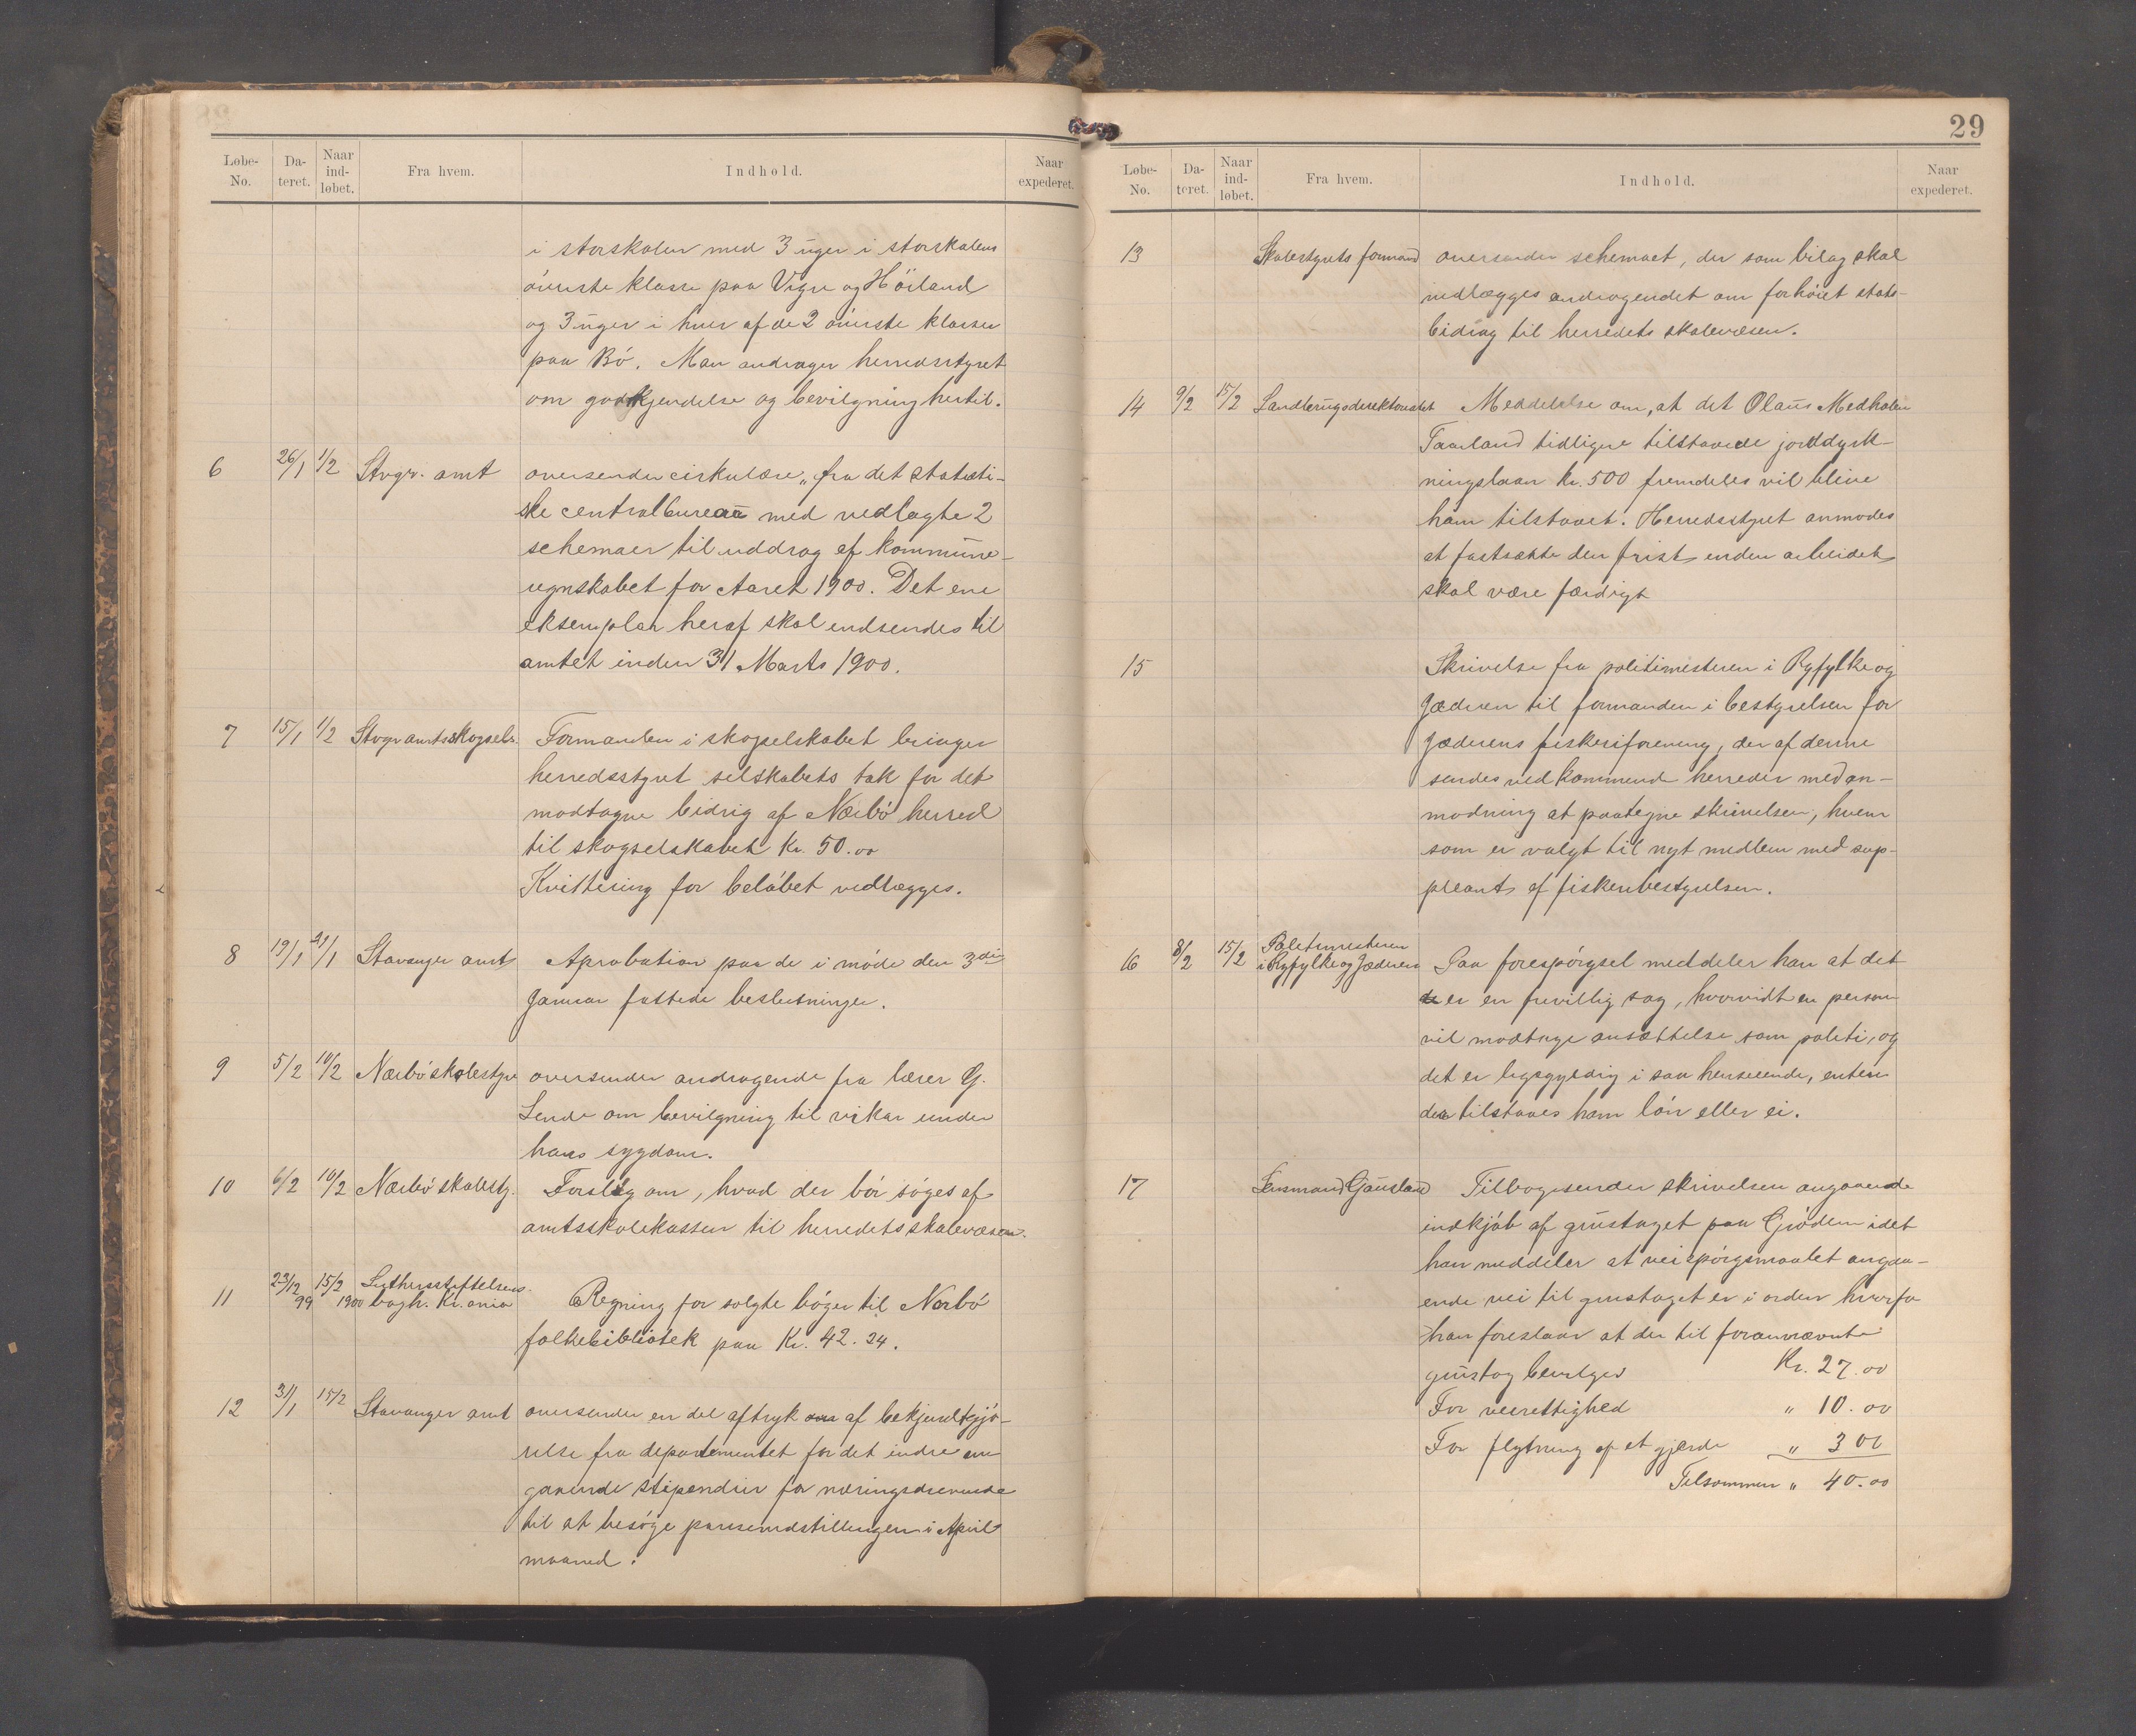 Løbe-No. Da-teret. Naar ind-løbet. Fra hvem. Indhold. Naar expederet.
i storskolen med 3 uger i storskolens
øverste klasse paa Vigre og Hörland
og 3 uger i hver af de 2 øverste klasser
paa Bö. Man andrager herredsstyret
om godkjendelse og bevilgning hertil.
6 26/1 1/2 Stvgr. amt oversender cirkulære „fra det statisti-
ske centralbureau med vedlagte 2
schemaer til uddrag af kommune-
regnskabet for Aaret 1900. Det ene
eksemplar heraf skal indsendes til
amtet inden 31 Marts 1900.
7 15/1 1/2 Stvgr amtsskogselsk. Formanden i skogselskabet bringer
herredsstyret selskabets tak for det
modtagne bidrag af Nærbö herred
til skogselskabet Kr. 50.00
Kvittering for belöbet vedlægges.
8 19/1 29/1 Stavanger amt Aprobation paa de i möde den 3die
Januar fattede beslutninger.
9 5/2 10/2 Nærbö skolestyre oversender andragende fra lærer G.
Lende om bevilgning til vikar under
hans sygdom.
10 6/2 10/2 Nærbö skolesty. Forslag om, hvad der bör söges af
amtsskolekassen til herredets skolevæsen.
11 23/12 99 15/2 1900 Luthersstiftelsens
bogh. Kr.ania Regning for solgte böger til Nærbö
folkebibliotek paa Kr. 42.24.
12 31/1 15/2 Stavanger amt oversender en del aftryk af bekjendtgjö-
relse fra departementet for det indre an
gaaende stipendier for næringsdrivende
til at besöge pariserudstillingen i April
maaned.
29
Løbe-No. Da-teret. Naar ind-løbet. Fra hvem. Indhold. Naar expederet.
13 Skolestyrets formand oversender schemaet, der som bilag skal
vedlægges andragendet om forhöiet stats-
bidrag til herredets skolevæsen.
14 9/2 15/2 Landbrugsdirektoratet Meddelelse om, at det Olaus Medholen
Taarland tidligere tilstaaede jorddyrk-
ningslaan kr. 500 fremdeles vil blive
ham tilstaaet. Herredsstyret anmodes
at fastsætte den frist, inden arbeidet
skal være færdigt
15 Skrivelse fra politimesteren i Ryfylke og
Jæderen til formanden i bestyrelsen for
Jæderens fiskeriforening, der af denne
sendes vedkommende herreder med an-
modning at paategne skrivelsen, hvem
som er valgt til nyt medlem med sup-
pleant af fiskeribestyrelsen.
16 8/2 15/2 Politimesteren
i Ryfylke og Jæderen Paa forespörgsel meddeler han at det
er en frivillig sag, hvorvidt en person
vil modtage ansættelse som politi, og
det er ligegyldig i saa henseende, enten
der tilstaaes ham lön eller ei.
17 Lensmand Gausland Tilbagesender skrivelsen angaaende
indkjöb af grustaget paa Gröden idet
han meddeler at veispörgsmaalet angaa-
ende vei til grustaget er i orden hvorfor
han foreslaar at der til forannævnte
grustag bevilges Kr. 27.00
For veirettighed " 10.00
For flytning af et gjærde " 3 00
Tilsammen " 40.00